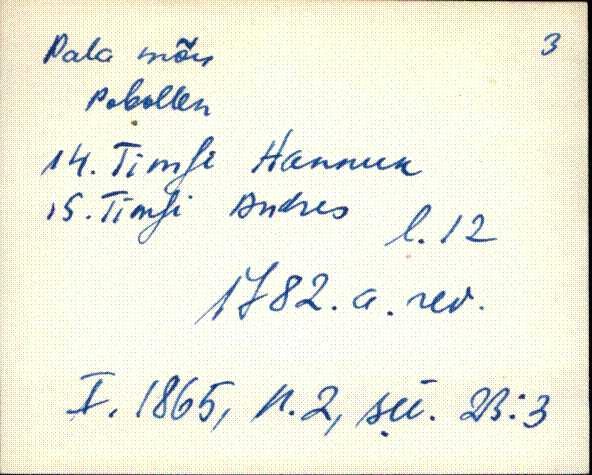 3
Pala mõis
Pobollen
14. Timfi Hannuk
15. Timfi Andres
l. 12
1782. a. rev.
F. 1865, n. 2, sü. 23:3